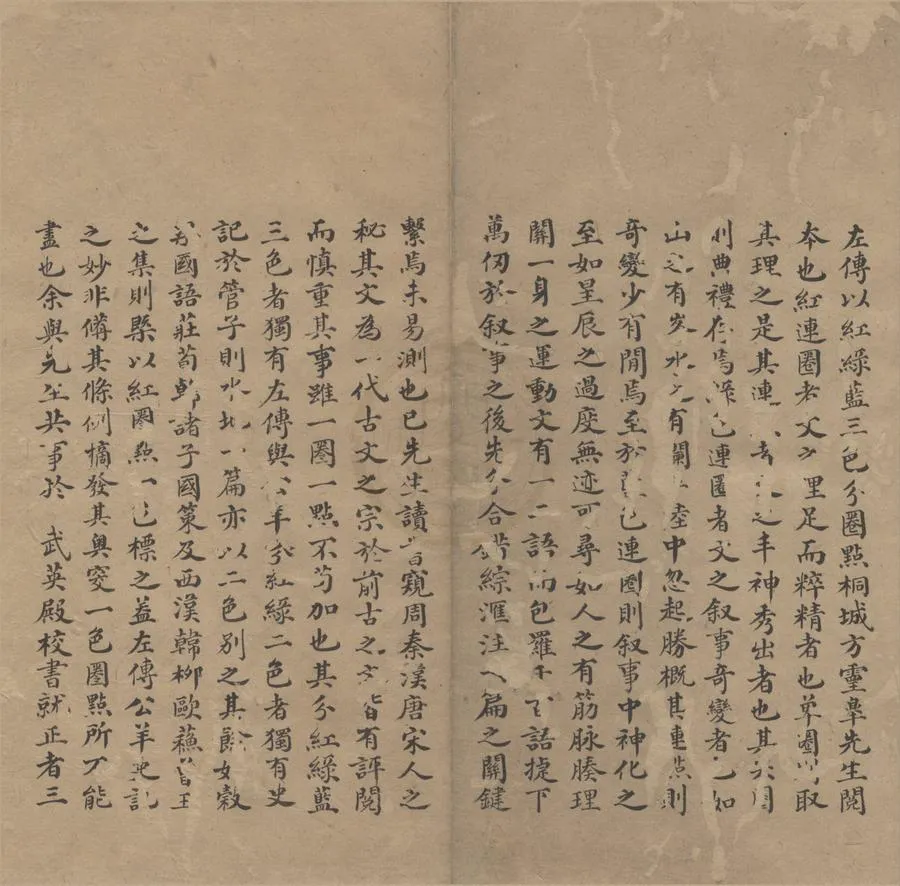 左傳以紅綠藍三色分圈點桐城方靈臯先生閱
本也紅連圈者文之理足而粹精者也單圈取
其理之是其連者之丰神秀出者也其於
典禮存焉連圈者文之敘事奇變者也如
山之有水之有瀾中忽起勝概其連點則
奇變少有閒焉至於色連圈則敘事中神化之
至如星辰之過度無迹可尋如人之有筋脉腠理
關一身之運動文有一二語而包羅千百語捷下
萬仞於敘事之後先分合錯綜滙注一篇之關鍵
繫焉未易測也已先生讀書窺周秦漢唐宋人之
秘其文為一代古文之宗於前古之文皆有評閱
而慎重其事雖一圈一點不苟加也其分紅綠藍
三色者獨有左傳與公羊分紅綠二色者獨有史
記於管子則水地一篇亦以二色別之其餘如榖
國語莊荀韓諸子國策及西漢韓柳歐蘇曾王
之集則槩以紅圈點一色標之益左傳公羊史記
之妙非僃其條例摘發其奧窔一色圈點所不能
盡也余與兄至共事於 武英殿校書就正者三